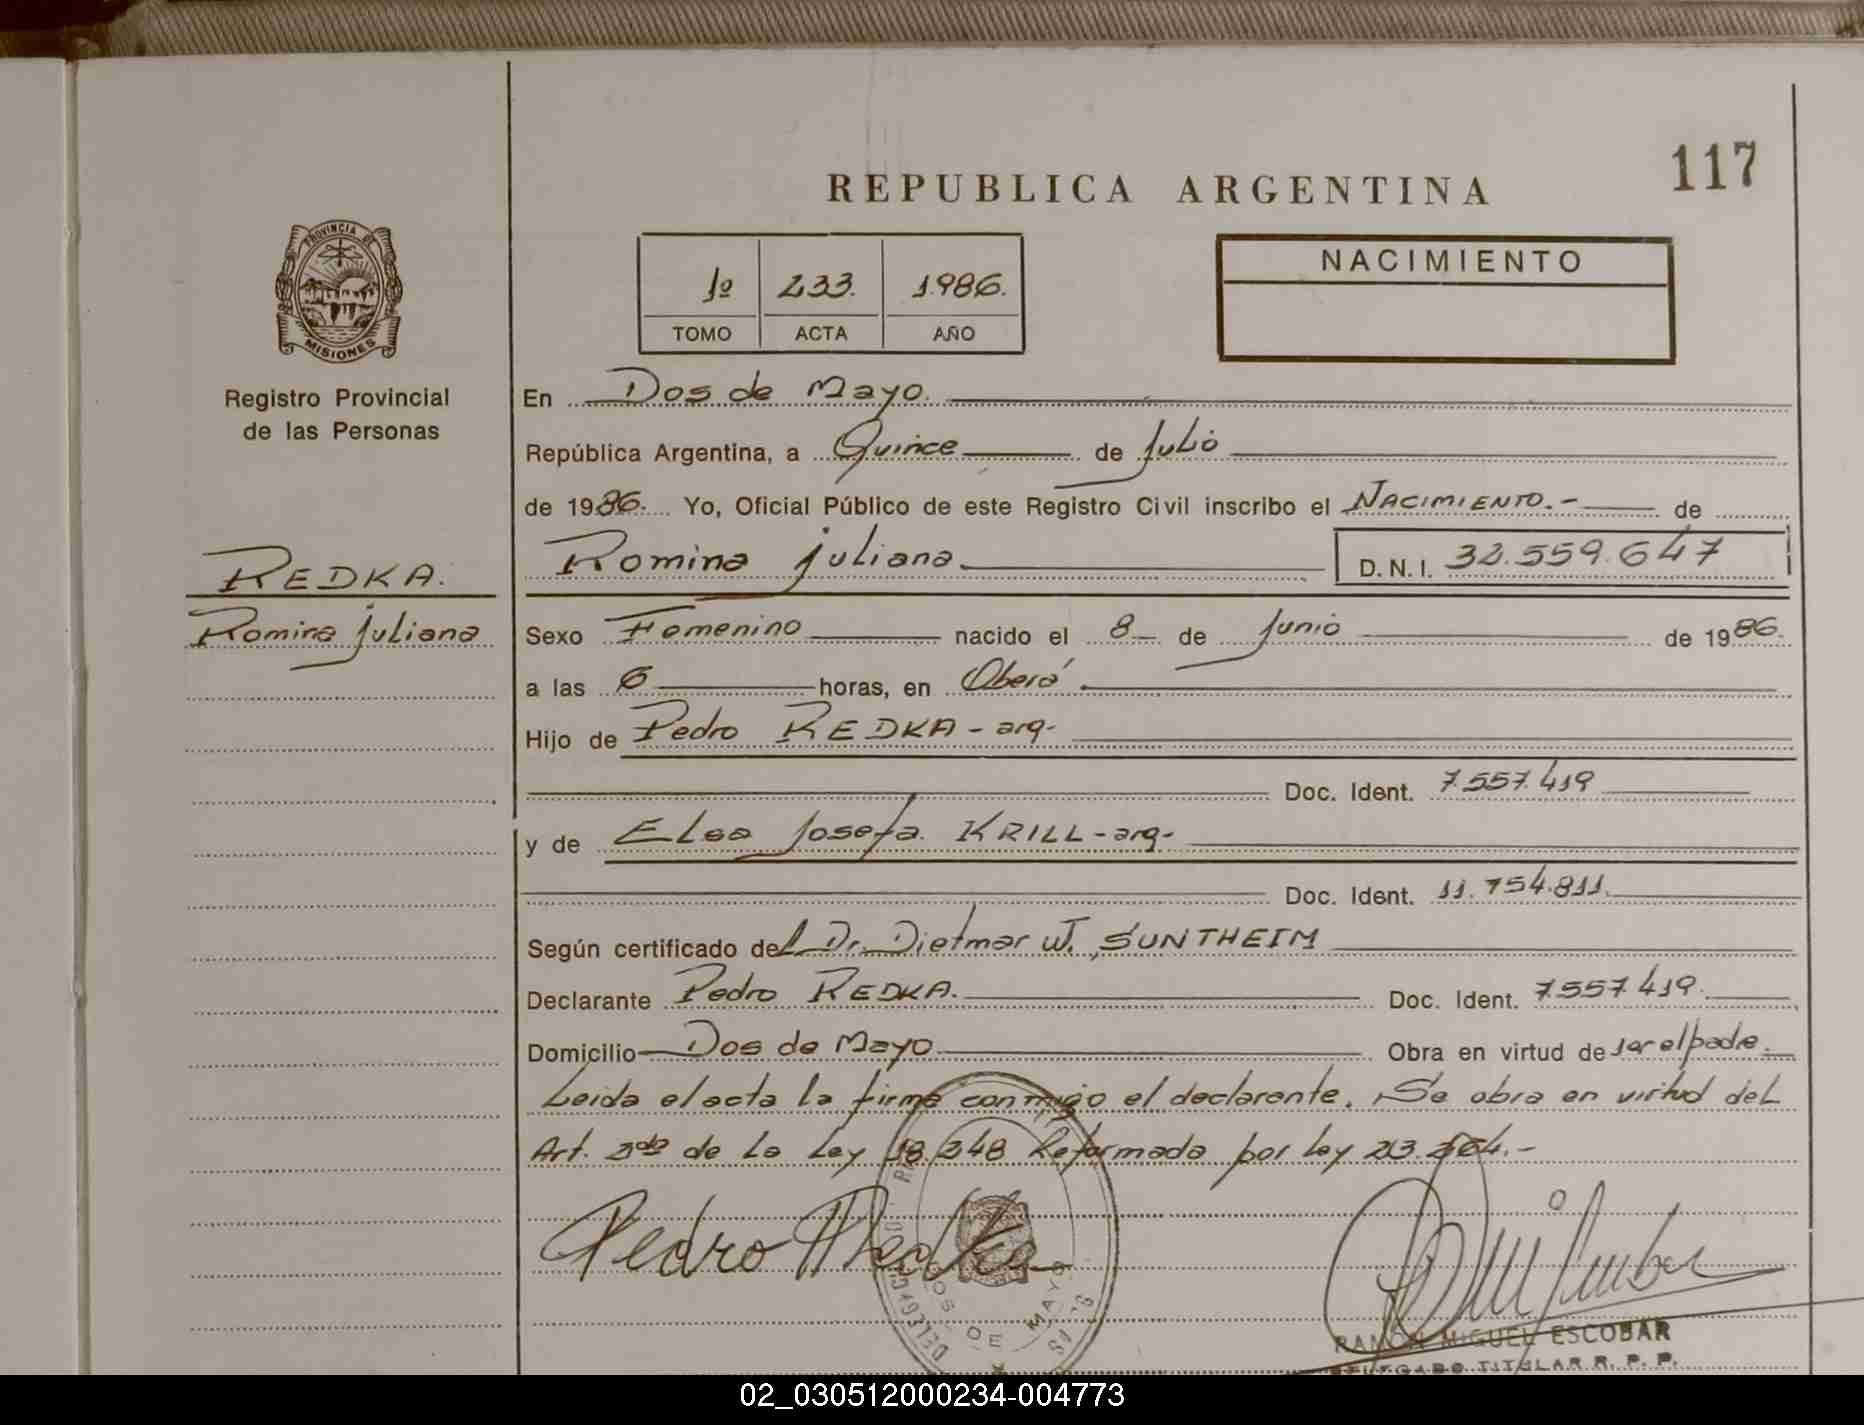 117
REPUBLICA ARGENTINA
PROVINCIA DE
MISIONES
Registro Provincial
de las Personas
1º 233. 1986.
TOMO ACTA AÑO
NACIMIENTO
En Dos de Mayo.
República Argentina, a Quince de Julio
de 1986. Yo, Oficial Público de este Registro Civil inscribo el NACIMIENTO.- de
Romina Juliana D.N.I. 32.559.647
REDKA.
Romina Juliana
Sexo Femenino nacido el 8 de Junio de 1986.
a las 6 horas, en Oberá
Hijo de Pedro REDKA - arg-
Doc. Ident. 7.557.419
y de Elsa Josefa KRILL - arg-
Doc. Ident. 11.754.811.
Según certificado del Dr. Dietmar W. SUNTHEIM
Declarante Pedro REDKA. Doc. Ident. 7.557.419
Domicilio Dos de Mayo Obra en virtud de ser el padre.
Leida el acta la firma conmigo el declarante. Se obra en virtud del
Art. 2do de la Ley 18.248 Reformada por ley 23.264.-
Pedro Redka
DOS DE MAYO
RAMON MIGUEL ESCOBAR
DELEGADO TITULAR R. P. P.
02_030512000234-004773